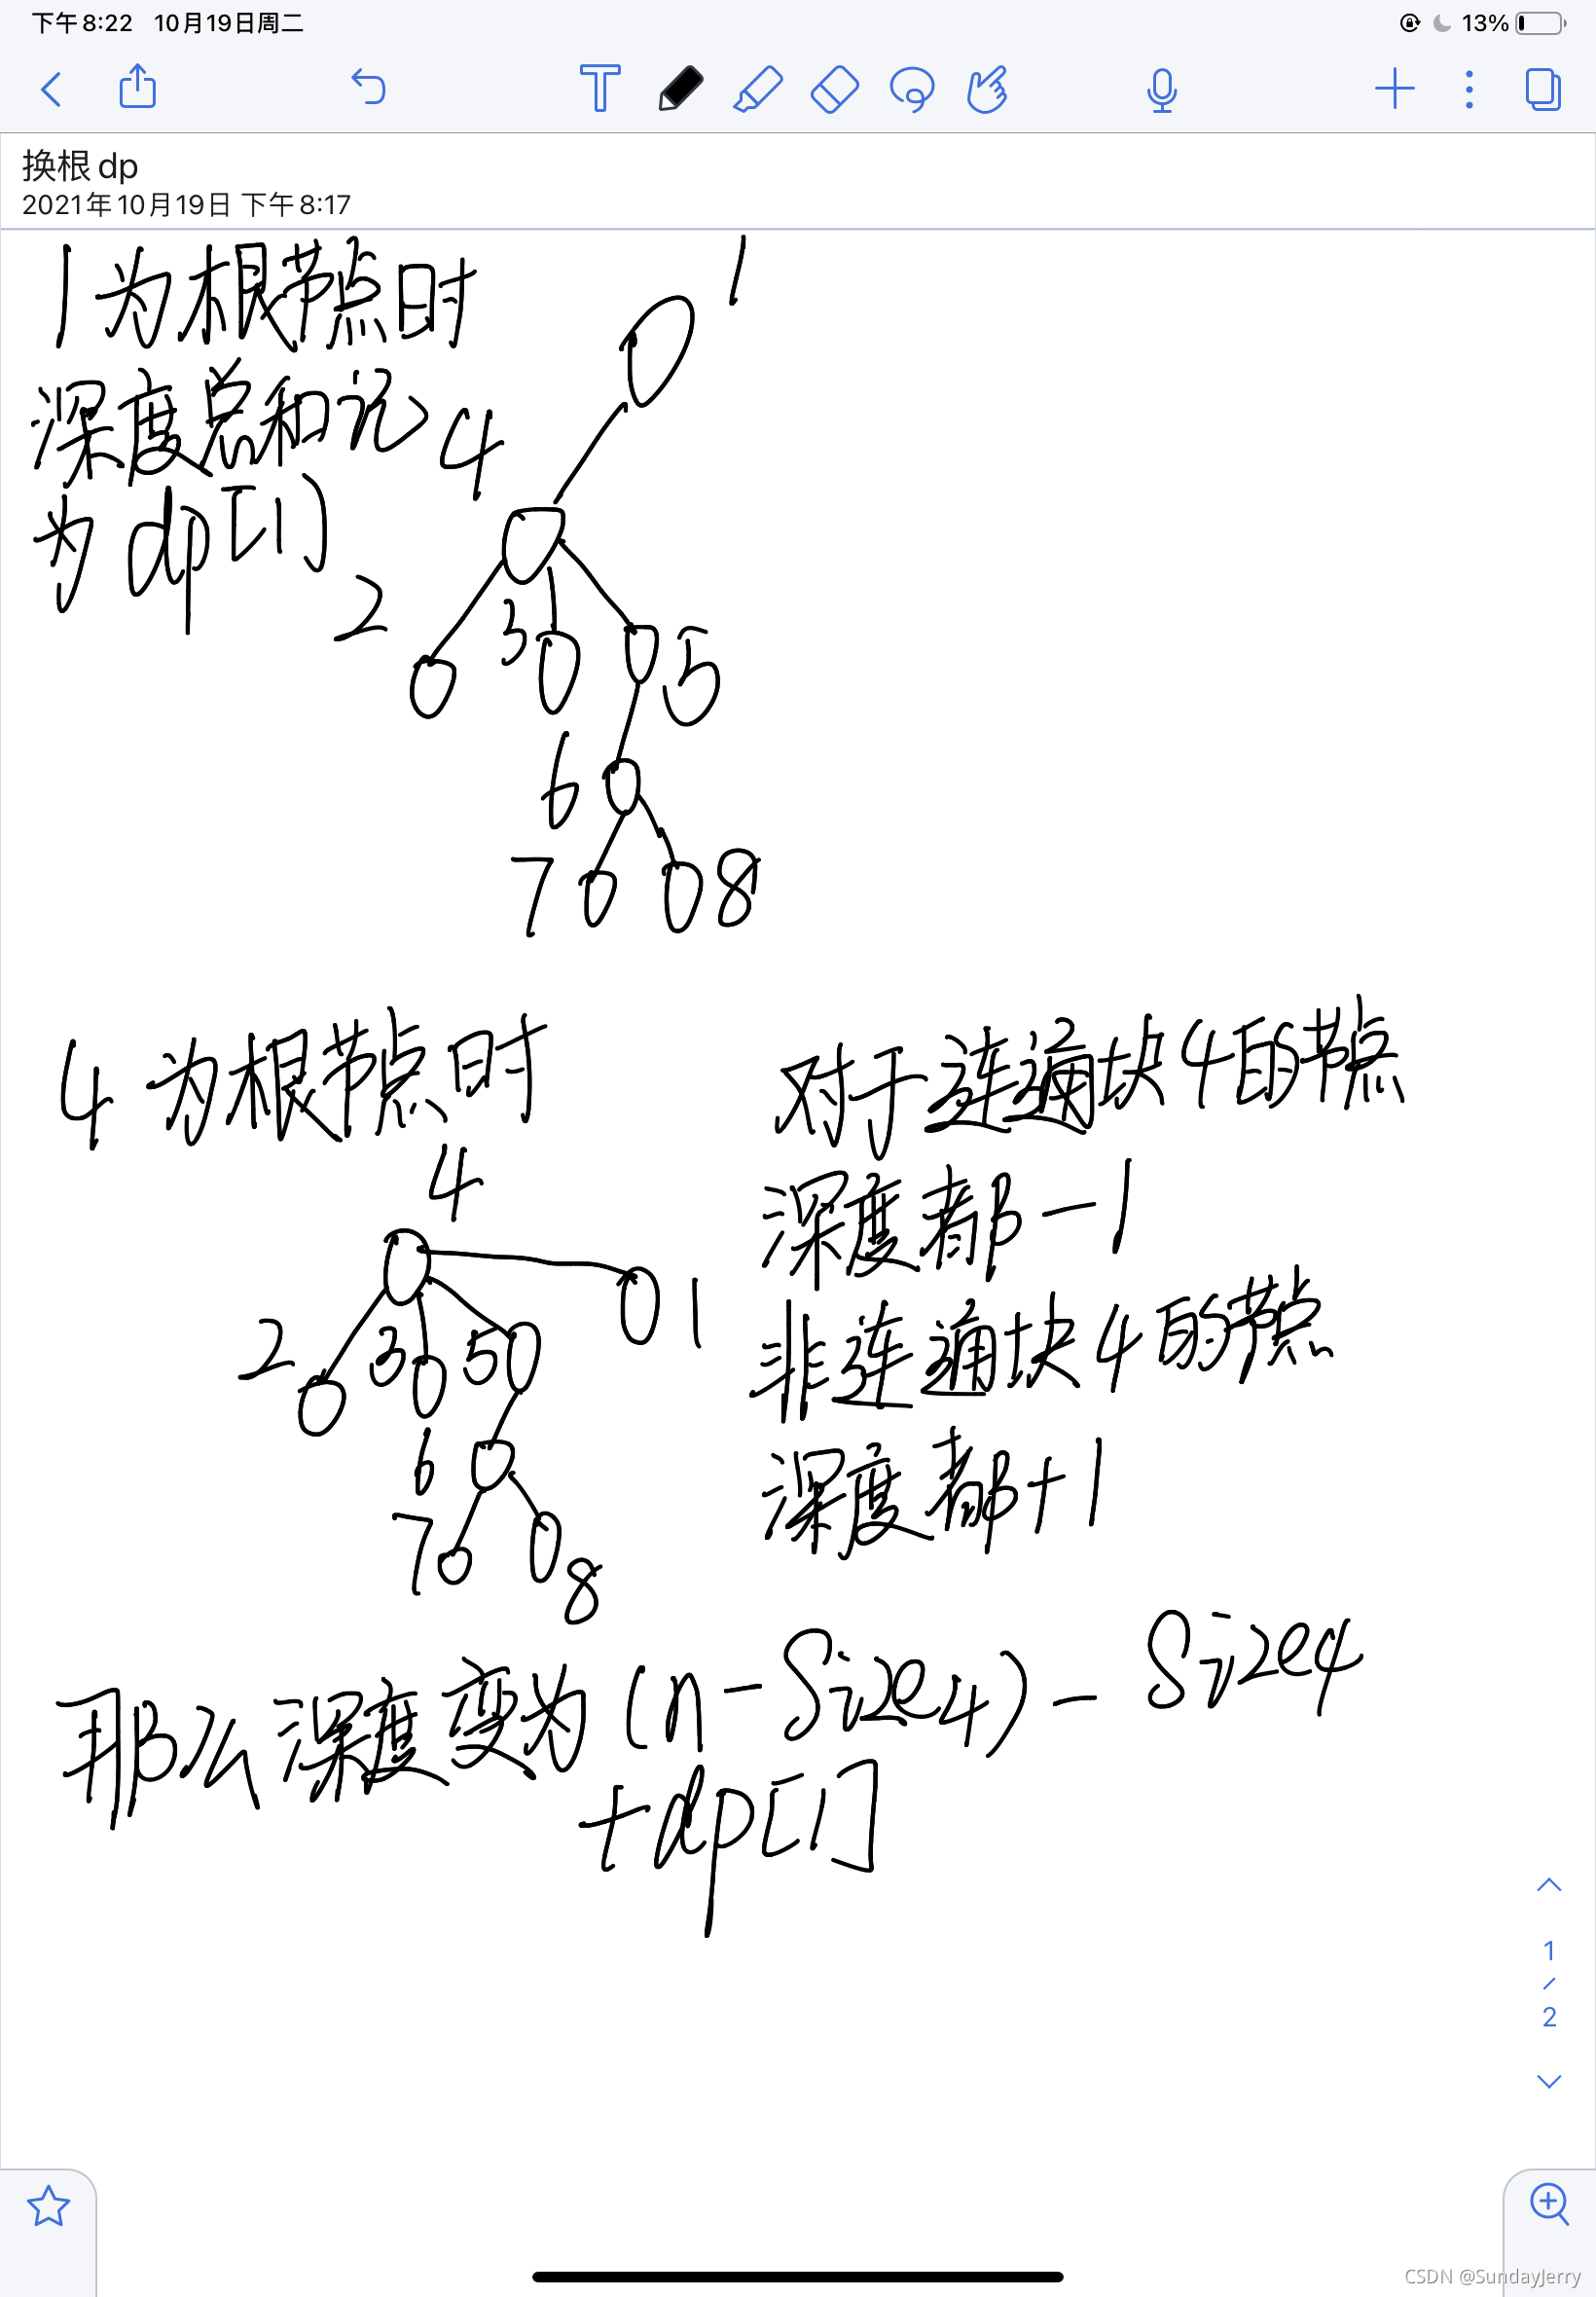 下午8:22 10月19日周二
13%
换根 dp
2021年10月19日 下午8:17
1为根节点时
深度总和记
为dp[1]
1
4
2
3
5
6
7
8
4为根节点时
4
1
2
3
5
6
7
8
对于连通块4的节点
深度都-1
非连通块4的节点
深度都+1
那么深度变为(n-Size4)-Size4
+dp[1]
1
/
2
CSDN @SundayJerry